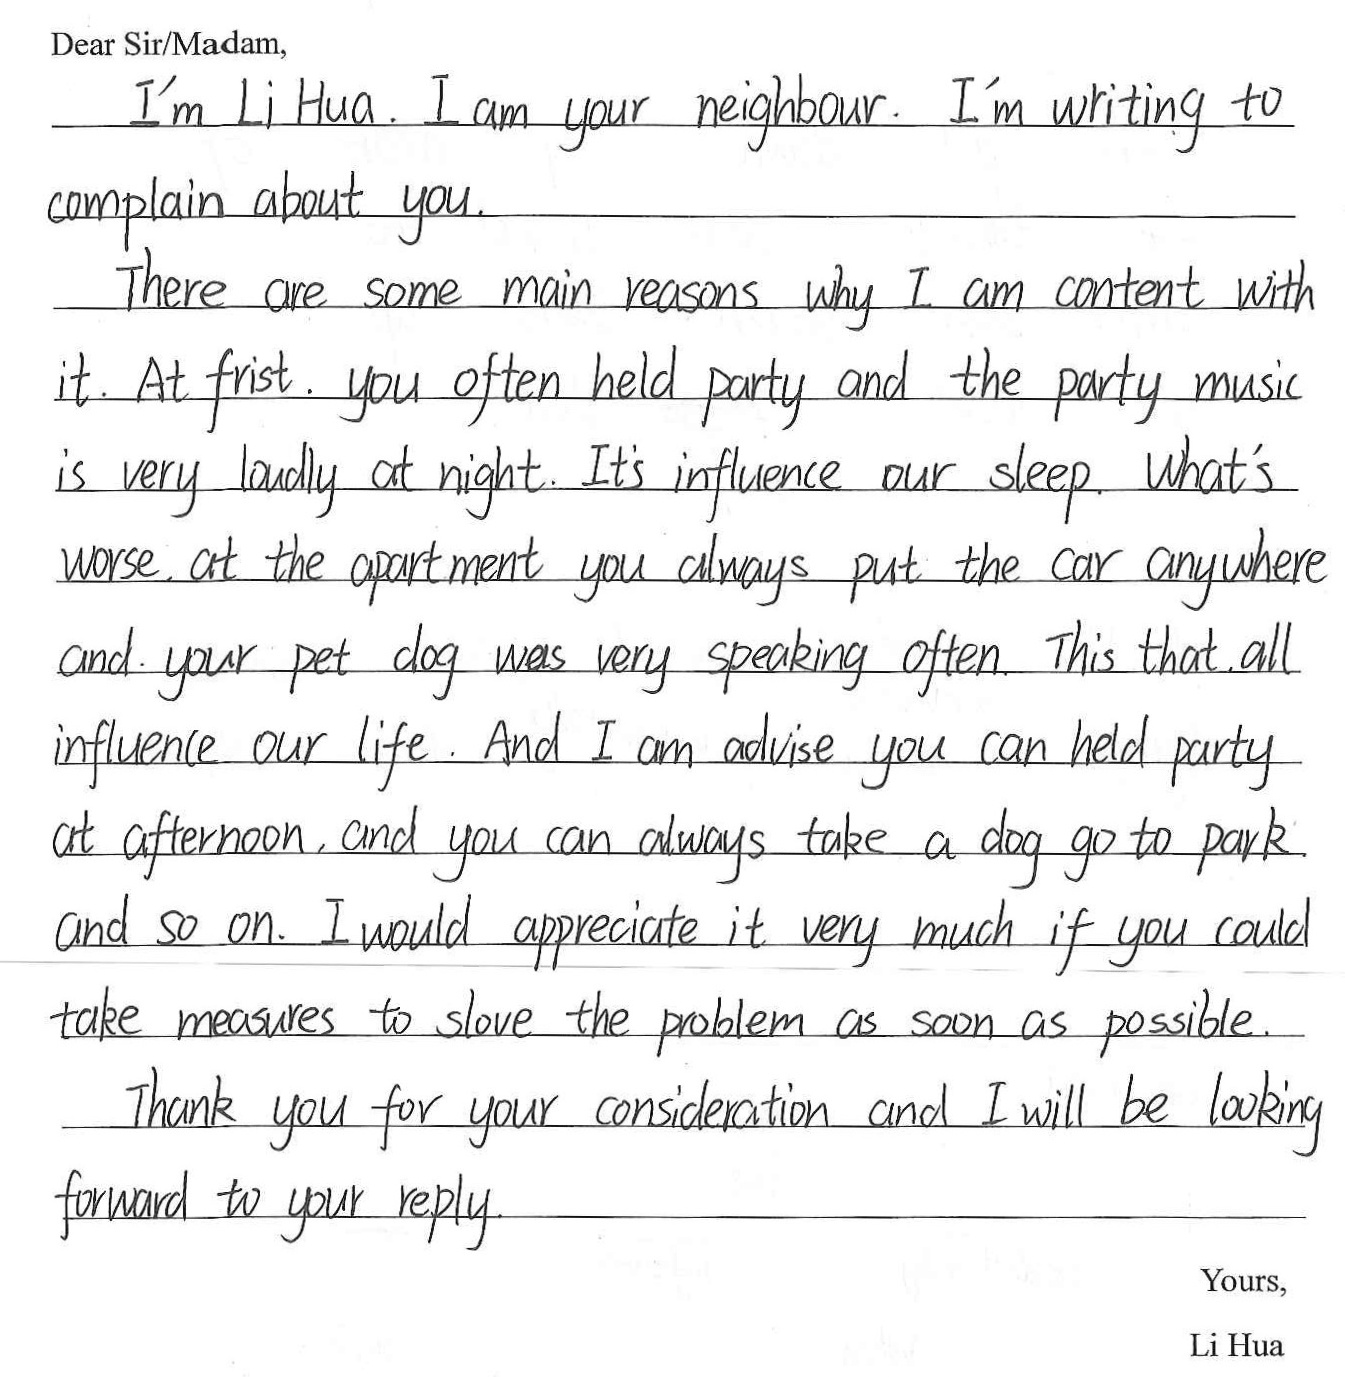 Dear Sir/Madam,
I'm Li Hua. I am your neighbour. I'm writing to
complain about you.
There are some main reasons why I am content with
it. At frist. you often held party and the party music
is very loudly at night. It's influence our sleep. What's
worse. at the apartment you always put the car anywhere
and. your pet dog was very speaking often. This that. all
influence our life. And I am advise you can held party
at afternoon, and you can always take a dog go to park.
and so on. I would appreciate it very much if you could
take measures to slove the problem as soon as possible.
Thank you for your consideration and I will be looking
forward to your reply.
Yours,
Li Hua